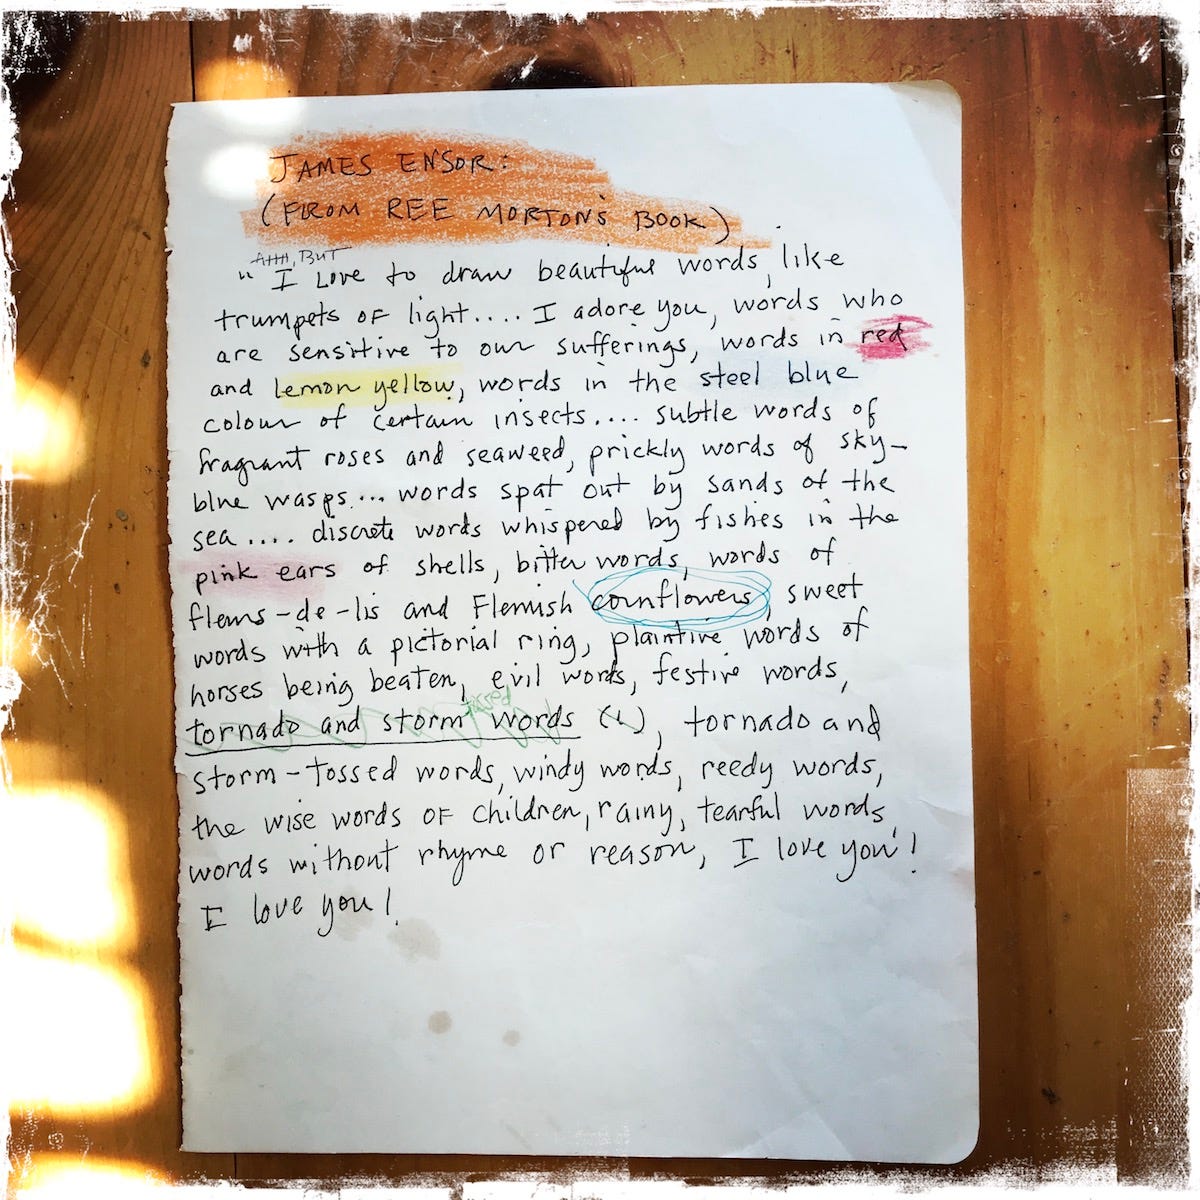 JAMES ENSOR:
(FROM REE MORTON'S BOOK)
AHH, BUT
"I Love to draw beautiful words, like
trumpets of light.... I adore you, words who
are sensitive to our sufferings, words in red
and lemon yellow, words in the steel blue
colour of certain insects.... subtle words of
fragrant roses and seaweed, prickly words of sky-
blue wasps... words spat out by sands of the
sea.... discrete words whispered by fishes in the
pink ears of shells, bitter words, words of
fleurs-de-lis and Flemish cornflowers, sweet
words with a pictorial ring, plaintive words of
horses being beaten, evil words, festive words,
tossed
tornado and storm words (1), tornado and
storm-tossed words, windy words, reedy words,
the wise words of children, rainy, tearful words,
words without rhyme or reason, I love you!
I love you!